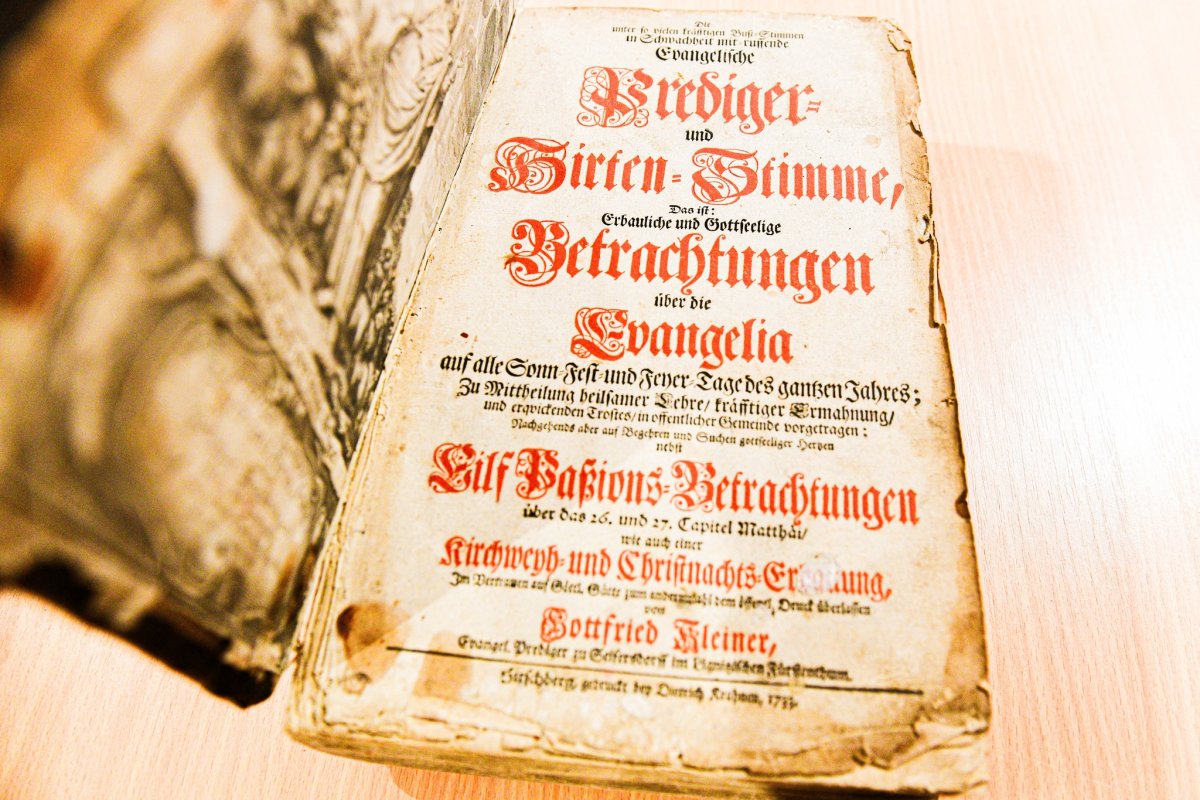 Die
unter so vielen kräfftigen Buß-Stimmen
in Schwachheit mit-ruffende
Evangelische
Prediger-
und
Hirten-Stimme,
Das ist:
Erbauliche und Gottseelige
Betrachtungen
über die
Evangelia
auf alle Sonn-Fest-und Feyer-Tage des gantzen Jahres;
Zu Mittheilung heilsamer Lehre/ kräfftiger Ermahnung/
und erqvickenden Trostes/ in offentlicher Gemeinde vorgetragen;
Nachgehends aber auf Begehren und Suchen gottseeliger Hertzen
nebst
Eilf Paßions-Betrachtungen
über das 26. und 27. Capitel Matthäi/
wie auch einer
Kirchweyh-und Christnachts-
Im Vertrauen auf Göttl. Güte zum andernmahl dem öffentl. Druck überlassen
von
Gottfried Kleiner,
Evangel. Prediger zu Seifersdorff im Lignitzischen Fürstenthum.
Hirschberg, gedruckt bey Dietrich Krahnen, 17